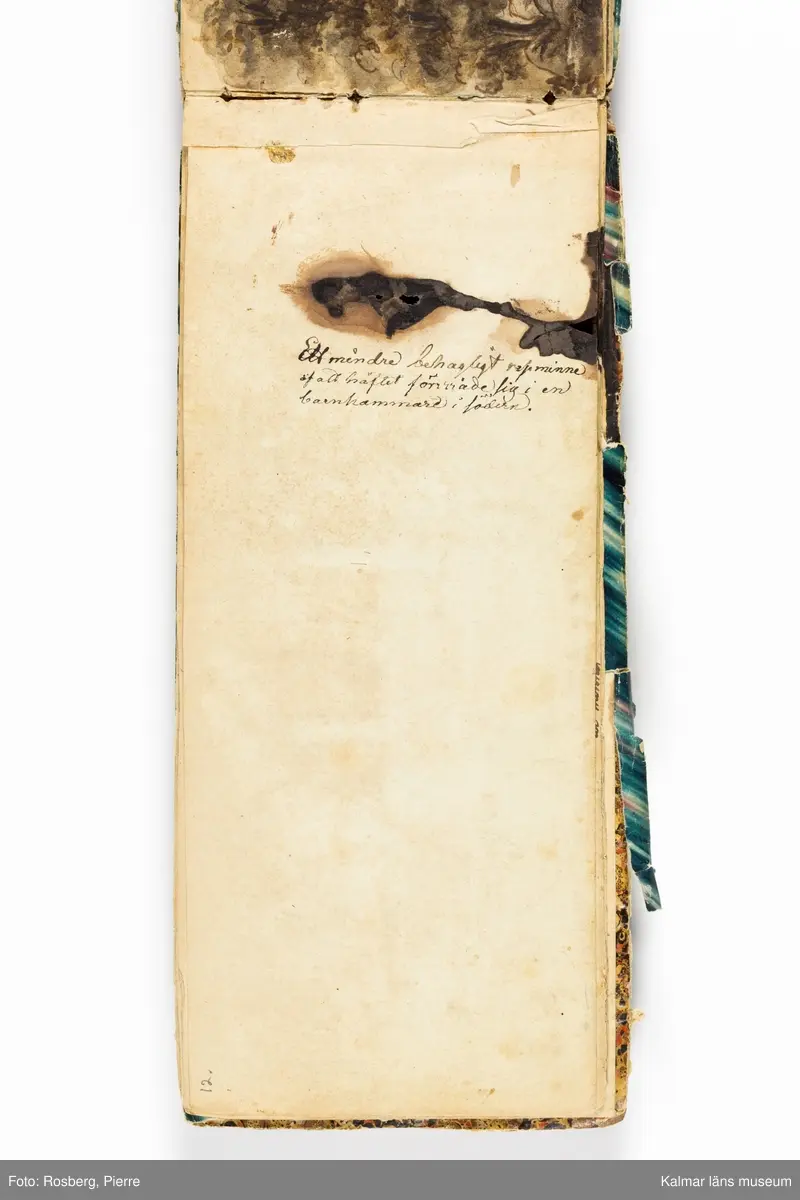 Ett mindre behagligt reseminne
af att häftet förirrade sig i en
barnkammare i södern.
12.
Foto: Rosberg, Pierre
Kalmar läns museum